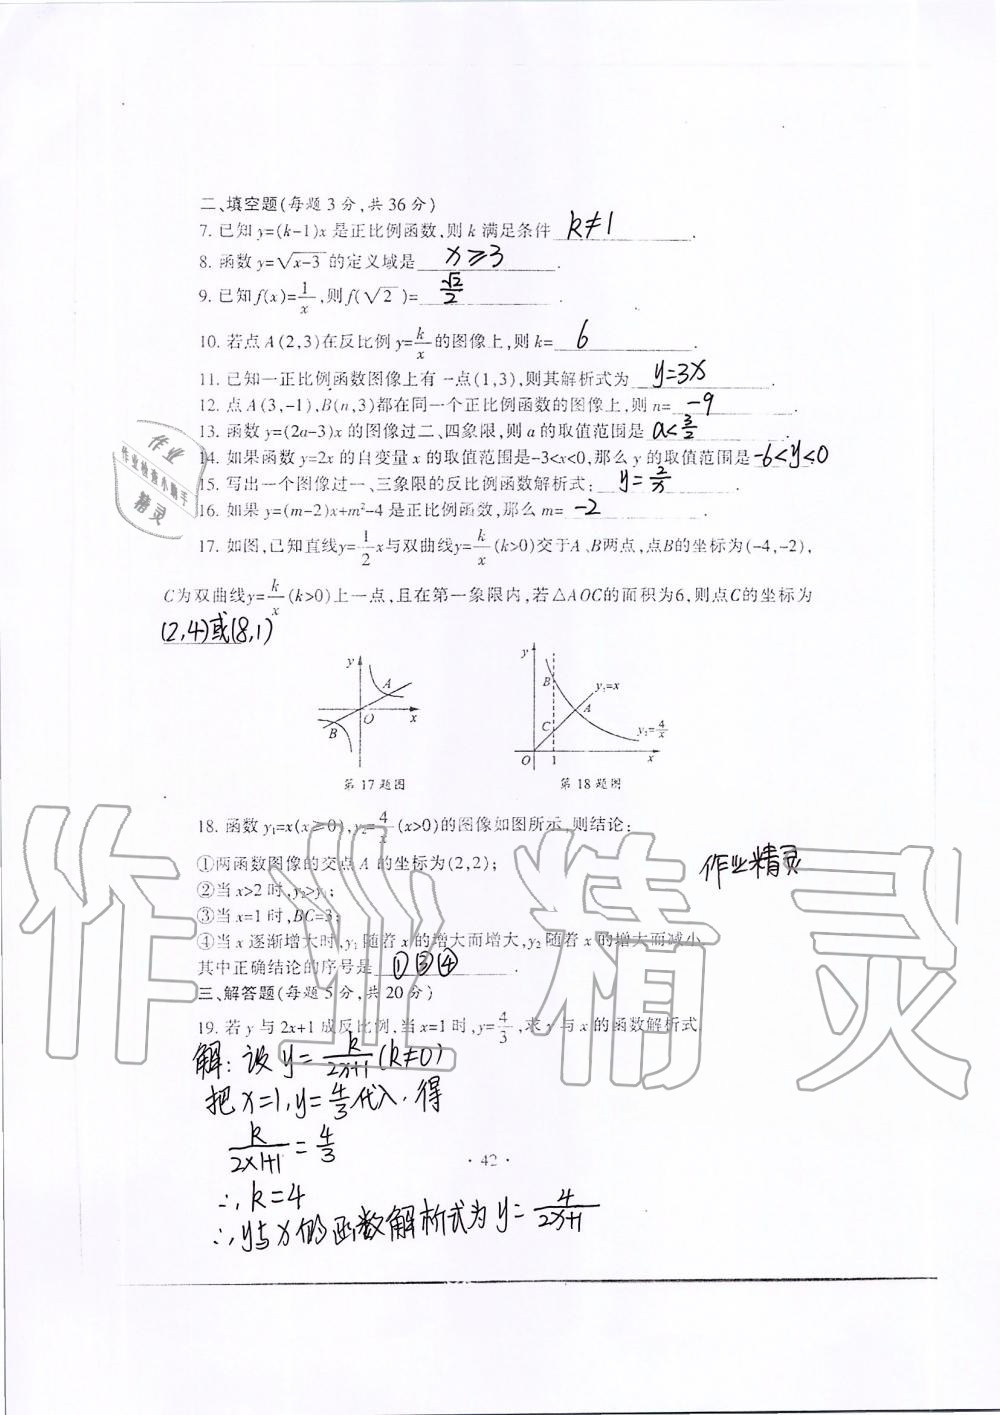 二、填空题(每题3分,共36分)
7. 已知y=(k-1)x 是正比例函数,则 k 满足条件 k≠1 .
8. 函数 y=√x-3 的定义域是 x≥3 .
9. 已知f(x)=1/x,则f(√2)= √2/2 .
10. 若点A(2,3)在反比例 y=k/x 的图像上,则 k= 6 .
11. 已知一正比例函数图像上有一点(1,3),则其解析式为 y=3x .
12. 点A(3,-1)、B(n,3)都在同一个正比例函数的图像上,则 n= -9 .
13. 函数 y=(2a-3)x 的图像过二、四象限,则 a 的取值范围是 a<3/2 .
14. 如果函数 y=2x 的自变量 x 的取值范围是-3<x<0,那么 y 的取值范围是 -6<y<0
15. 写出一个图像过一、三象限的反比例函数解析式: y=2/x .
16. 如果 y=(m-2)x+m²-4 是正比例函数,那么 m= -2 .
17. 如图,已知直线y=1/2x与双曲线y=k/x(k>0)交于A、B两点,点B的坐标为(-4,-2),
C为双曲线y=k/x(k>0)上一点,且在第一象限内,若△AOC的面积为6,则点C的坐标为
(2,4)或(8,1)
y
A
O
x
B
第17题图
y
B
y₁=x
A
C
y₂=4/x
O 1 x
第18题图
18. 函数 y₁=x(x≥0),y₂=4/x(x>0)的图像如图所示,则结论:
①两函数图像的交点 A 的坐标为(2,2);
②当 x>2 时,y₂>y₁;
③当 x=1 时,BC=3;
④当 x 逐渐增大时,y₁ 随着 x 的增大而增大,y₂ 随着 x 的增大而减小.
其中正确结论的序号是 ①③④ .
作业精灵
三、解答题(每题5分,共20分)
19. 若 y 与 2x+1 成反比例,当 x=1 时,y=4/3,求 y 与 x 的函数解析式.
解:设 y=k/2x+1(k≠0)
把x=1,y=4/3代入,得
k/2×1+1=4/3
∴k=4
∴y与x的函数解析式为y=4/2x+1
· 42 ·
作业
作业检查小助手
精灵
作业精灵